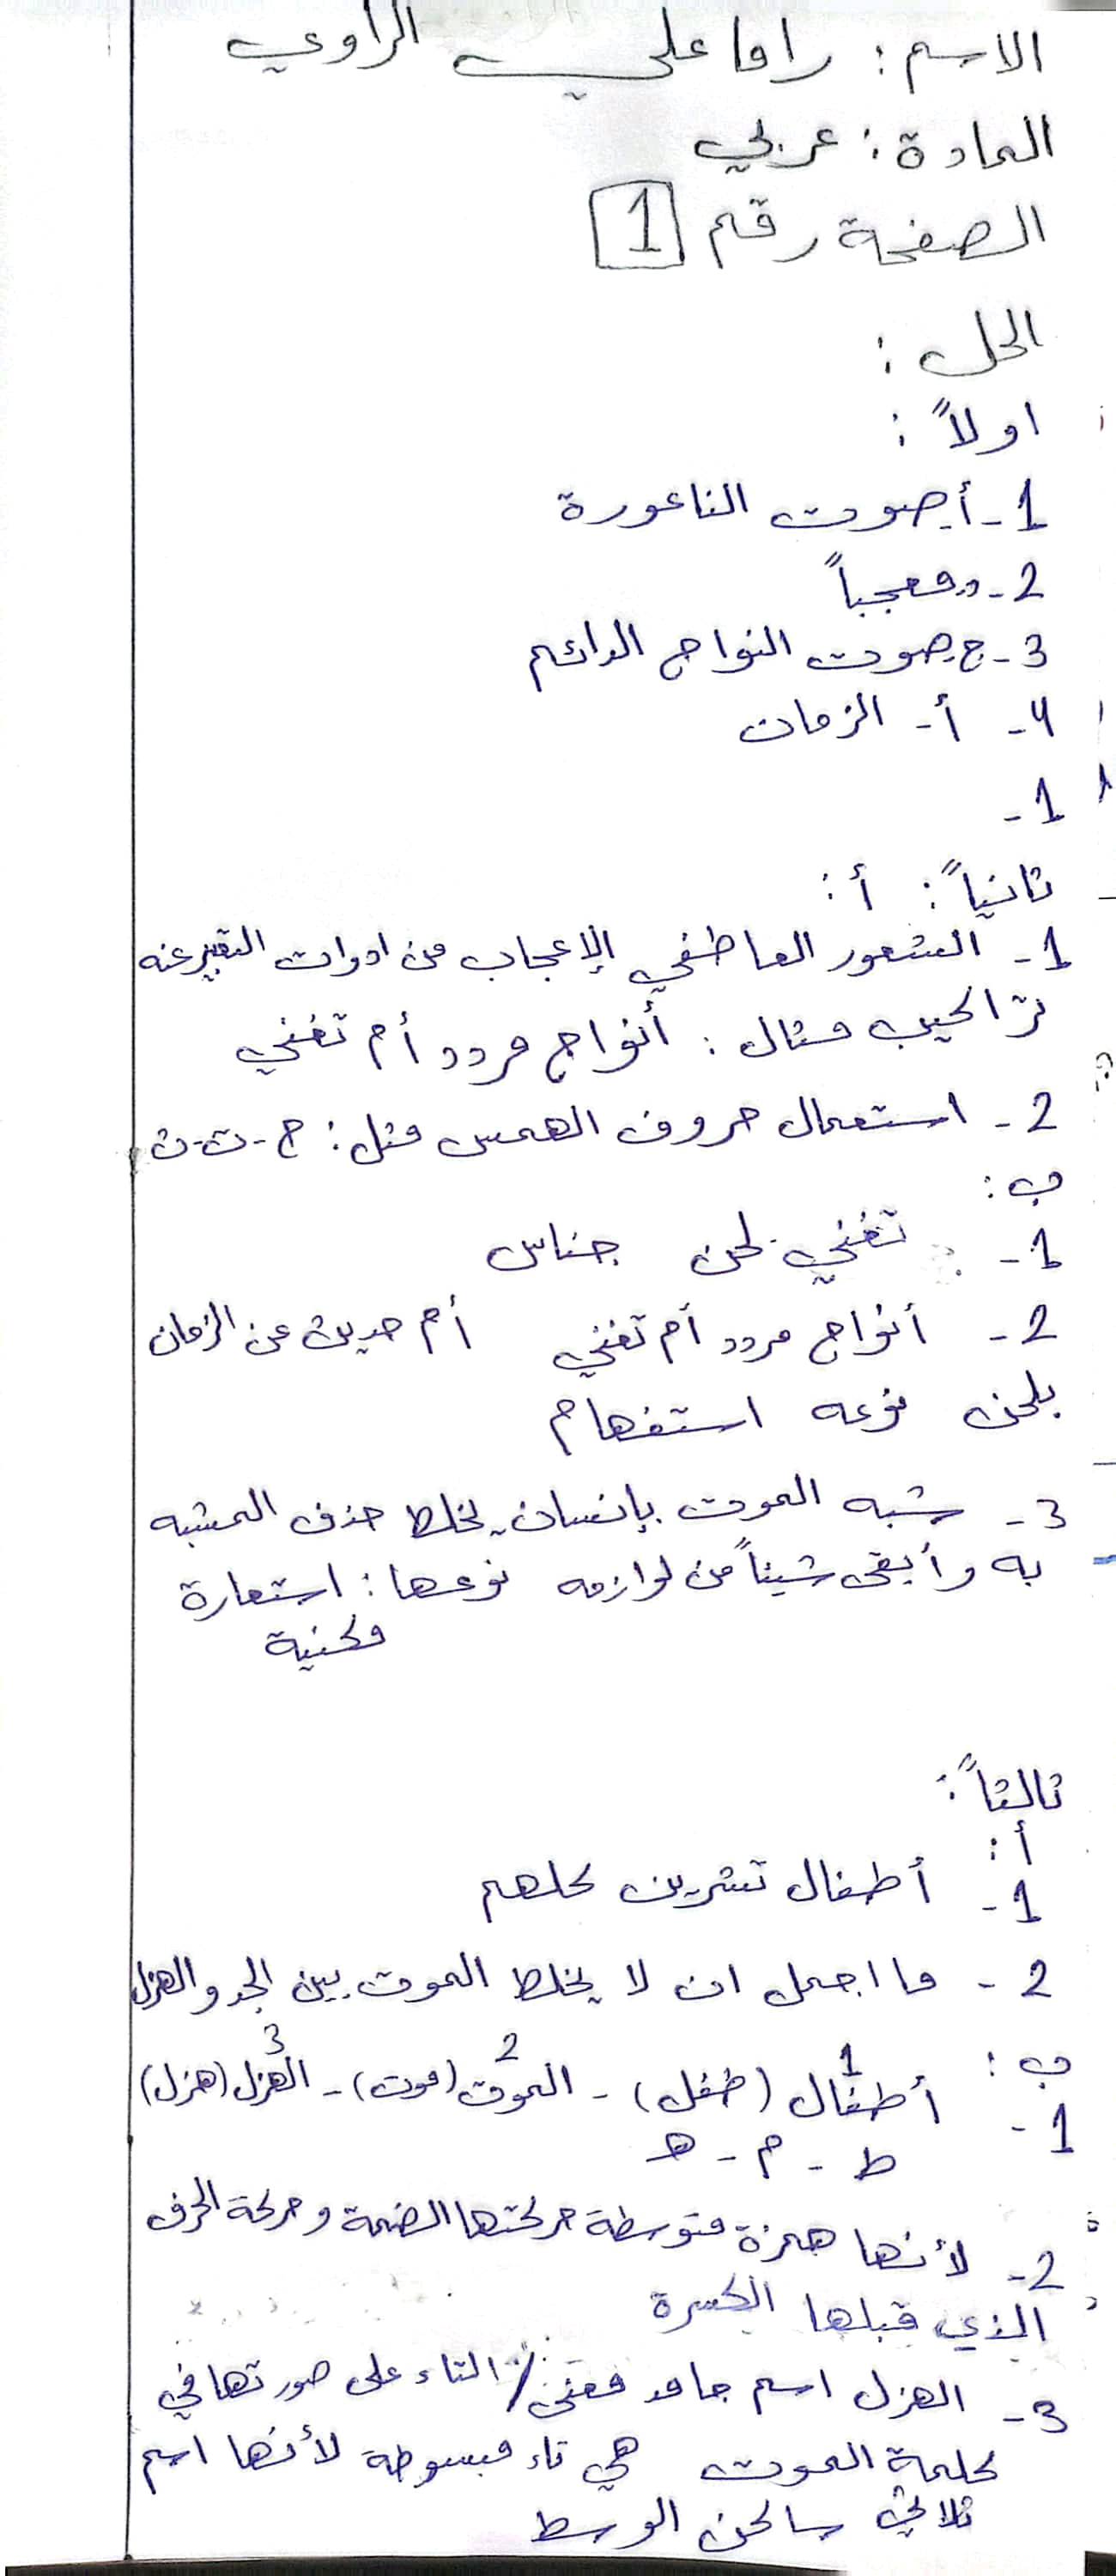 الاسم : راما علي الراوي
المادة : عربي
الصفحة رقم 1
الحل :
اولاً :
1- أ. صوت الناعورة
2- د. معجباً
3- ج. صوت النواح الدائم
4- أ- الزمان
1-
ثانياً : أ :
1- الشعور العاطفي الإعجاب من ادوات التعبير عنه
تراكيب مثال : أنواح مردد أم تغني
2- استعمال حروف الهمس مثل : ح - ت - ث
ب :
1- تغني. لحن جناس
2- أنواح مردد أم تغني أم حديث عن الزمان
بلحن نوعه استفهام
3- شبه الموت بإنسان يخلط حذف المشبه
به وأبقى شيئاً من لوازمه نوعها : استعارة
مكنية
ثالثاً :
أ :
1- أطفال تشرين كلهم
2- ما اجمل ان لا يخلط الموت بين الجد والهزل
ب :
1- أطفال (طفل) 1 - الموت (موت) 2 - الهزل (هزل) 3
ط - م - ه
2- لأنها همزة متوسطة حركتها الضمة وحركة الحرف
الذي قبلها الكسرة
3- الهزل اسم جامد معنى / التاء على صورتها في
كلمة الموت هي تاء مبسوطة لأنها اسم
ثلاثي ساكن الوسط